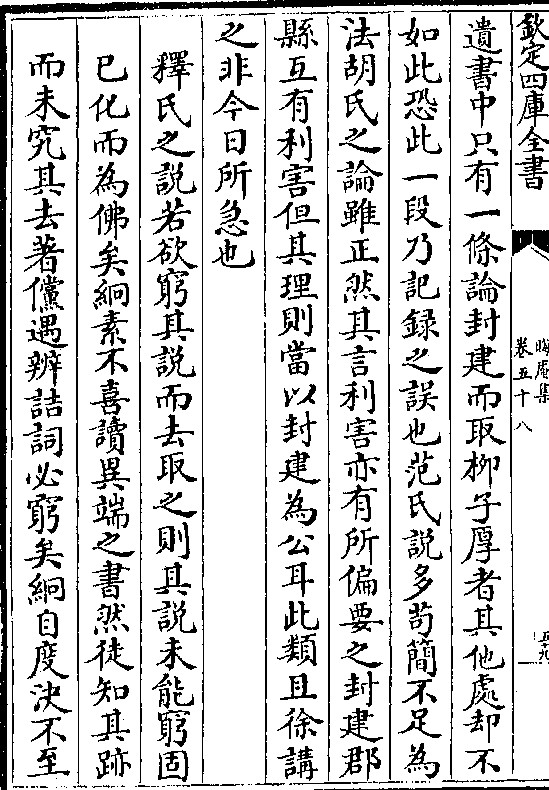 欽定四庫全書
晦庵集
卷五十八
五十九
遺書中只有一條論封建而取柳子厚者其他處却不
如此恐此一段乃記録之誤也范氏説多苟簡不足為
法胡氏之論雖正然其言利害亦有所偏要之封建郡
縣互有利害但其理則當以封建為公耳此類且徐講
之非今日所急也
釋氏之説若欲窮其説而去取之則其説未能窮固
已化而為佛矣絅素不喜讀異端之書然徒知其跡
而未究其去著儻遇辨詰詞必窮矣絅自度決不至